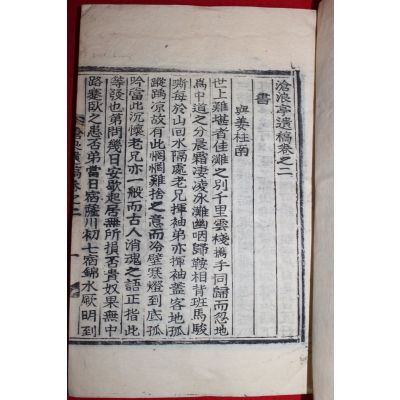 滄浪亭遺稿卷之二
書
與姜柱南
世上難堪者佳灘之別千里雲棧攜手同歸而忽地
爲中道之分晨霜淒凌泳灘幽咽歸鞍相背班馬駿
嘶每於山回水隔處老兄揮袖弟亦揮袖蓋客地孤
蹤踽凉故有此惘惘難捨之意而冷壁寒燈到底孤
吟當此沉懷老兄亦一般而古人消魂之語正指此
等設也弟問幾日安歇起居無所損否貴奴果無中
路蹇臥之患否弟當日宿薩川初七宿錦水厥明到